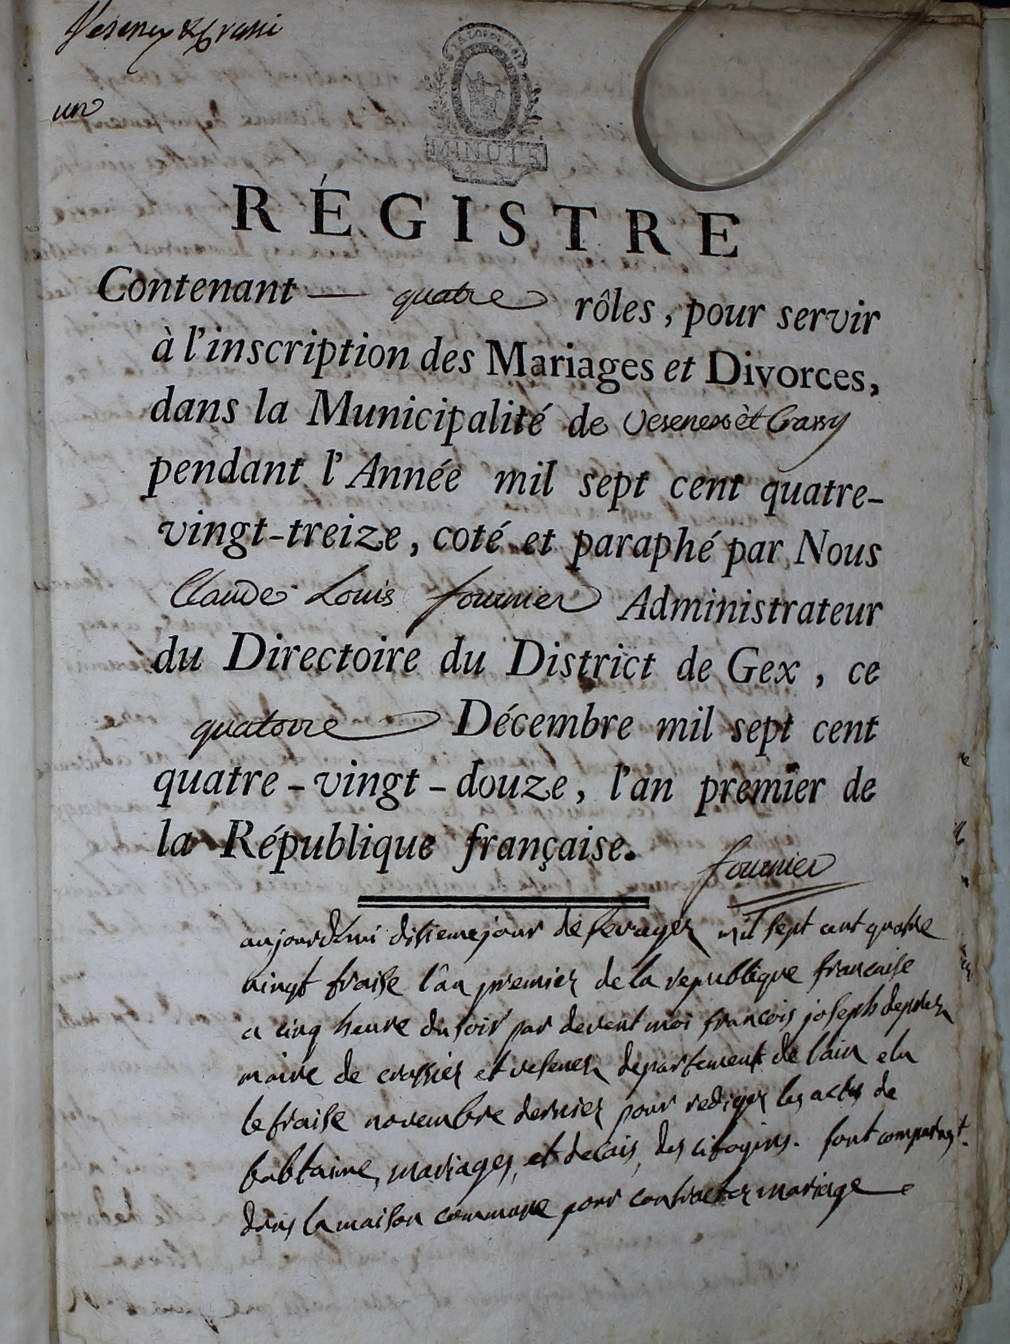 Vesenex & Crassi
un
LA LOI
MINUTE
4 S
RÉGISTRE
Contenant — quatre rôles, pour servir
à l'inscription des Mariages et Divorces,
dans la Municipalité de Vesenex èt Crassy
pendant l'Année mil sept cent quatre-
vingt-treize, coté et paraphé par Nous
Claude Louis fournier Administrateur
du Directoire du District de Gex, ce
quatorze Décembre mil sept cent
quatre-vingt-douze, l'an premier de
la République française.
fournier
aujourdhui disieme jour de fevrayer mil sept cent quatre
vingt fraise l'an premier de la republique francaise
a cinq heure du soir par devent moi francois joseph deprez
maire de crassier et vesenex departement de lain elu
le fraise novembre dernier pour rediger les actes de
babtaime, mariages, et decais, des citoyins. sont comparus
dans la maison commune pour contracter mariage